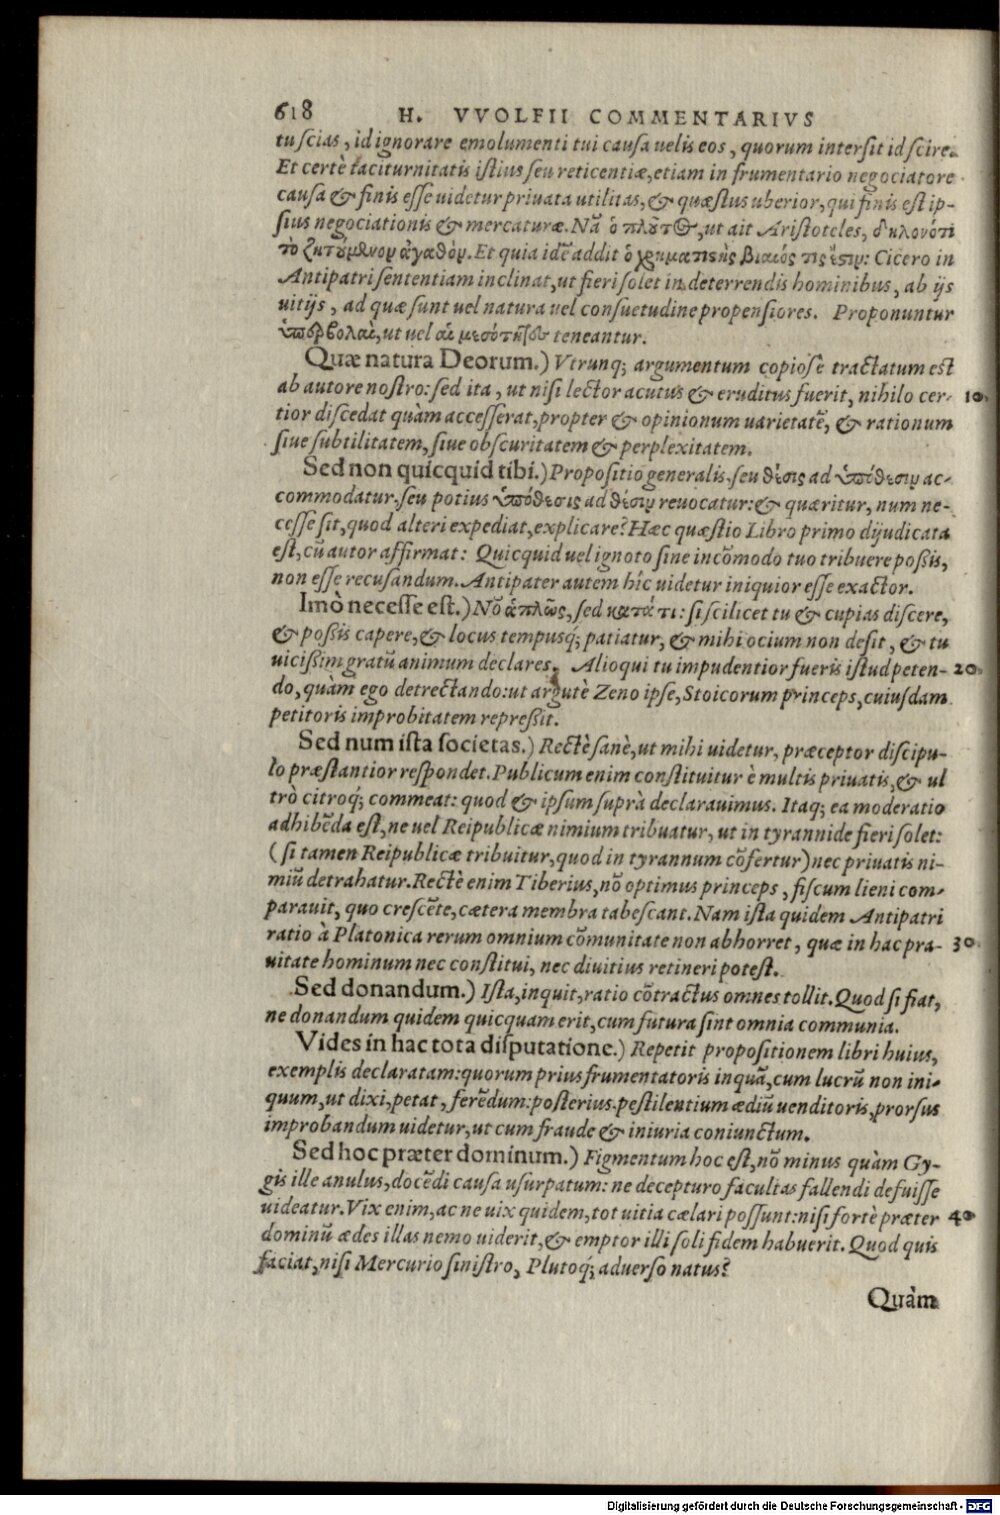 618 H. VVOLFII COMMENTARIVS
tu scias, id ignorare emolumenti tui causa uelis eos, quorum intersit id scire.
Et certè taciturnitatis istius seu reticentiæ, etiam in frumentario negociatore
causa & finis esse uidetur priuata utilitas, & quæstus uberior, qui finis est ip-
sius negociationis & mercaturæ. Nã ὁ πλοῦτος, ut ait Aristoteles, δηλονότι
τὸ ζητούμενον ἀγαθόν. Et quia idẽ addit ὁ χρηματιστὴς βίαιός τις ἐστιν: Cicero in
Antipatri sententiam inclinat, ut fieri solet in deterrendis hominibus, ab ijs
uitijs, ad quæ sunt uel natura uel consuetudine propensiores. Proponuntur
ὑπερβολαὶ, ut uel αἱ μεσότητες teneantur.
Quæ natura Deorum.) Vtrunq; argumentum copiosè tractatum est
ab autore nostro: sed ita, ut nisi lector acutus & eruditus fuerit, nihilo cer- 10
tior discedat quàm accesserat, propter & opinionum uarietatẽ, & rationum
siue subtilitatem, siue obscuritatem & perplexitatem.
Sed non quicquid tibi.) Propositio generalis, seu θέσις ad ὑπόθεσιν ac-
commodatur, seu potius ὑπόθεσις ad θέσιν reuocatur: & quæritur, num ne-
cesse sit, quod alteri expediat, explicare? Hæc quæstio Libro primo dijudicata
est, cũ autor affirmat: Quicquid uel ignoto sine incõmodo tuo tribuere poßis,
non esse recusandum. Antipater autem hîc uidetur iniquior esse exactor.
Imò necesse est.) Nõ ἁπλῶς, sed κατά τι: si scilicet tu & cupias discere,
& poßis capere, & locus tempusq́; patiatur, & mihi ocium non desit, & tu
uicißim gratũ animum declares. Alioqui tu impudentior fueris istud peten- 20
do, quàm ego detrectando: ut argutè Zeno ipse, Stoicorum princeps, cuiusdam
petitoris improbitatem repreßit.
Sed num ista societas.) Rectè sanè, ut mihi uidetur, præceptor discipu-
lo præstantior respondet. Publicum enim constituitur è multis priuatis, & ul
trò citroq́; commeat: quod & ipsum suprà declarauimus. Itaq; ea moderatio
adhibẽda est, ne uel Reipublicæ nimium tribuatur, ut in tyrannide fieri solet:
(si tamen Reipublicæ tribuitur, quod in tyrannum cõfertur) nec priuatis ni-
miũ detrahatur. Rectè enim Tiberius, nõ optimus princeps, fiscum lieni com-
parauit, quo crescẽte, cætera membra tabescant. Nam ista quidem Antipatri
ratio à Platonica rerum omnium cõmunitate non abhorret, quæ in hac pra- 30
uitate hominum nec constitui, nec diuitius retineri potest.
Sed donandum.) Ista, inquit, ratio cõtractus omnes tollit. Quod si fiat,
ne donandum quidem quicquam erit, cum futura sint omnia communia.
Vides in hac tota disputatione.) Repetit propositionem libri huius,
exemplis declaratam: quorum prius frumentatoris inquã, cum lucrũ non ini-
quum, ut dixi, petat, ferẽdum: posterius pestilentium ædiũ uenditoris, prorsus
improbandum uidetur, ut cum fraude & iniuria coniunctum.
Sed hoc præter dominum.) Figmentum hoc est, nõ minus quàm Gy-
gis ille anulus, docẽdi causa usurpatum: ne decepturo facultas fallendi defuisse
uideatur. Vix enim, ac ne uix quidem, tot uitia cælari possunt: nisi fortè præter 40
dominũ ædes illas nemo uiderit, & emptor illi soli fidem habuerit. Quod quis
faciat, nisi Mercurio sinistro, Plutoq́; aduerso natus?
Quàm
Digitalisierung gefördert durch die Deutsche Forschungsgemeinschaft - DFG